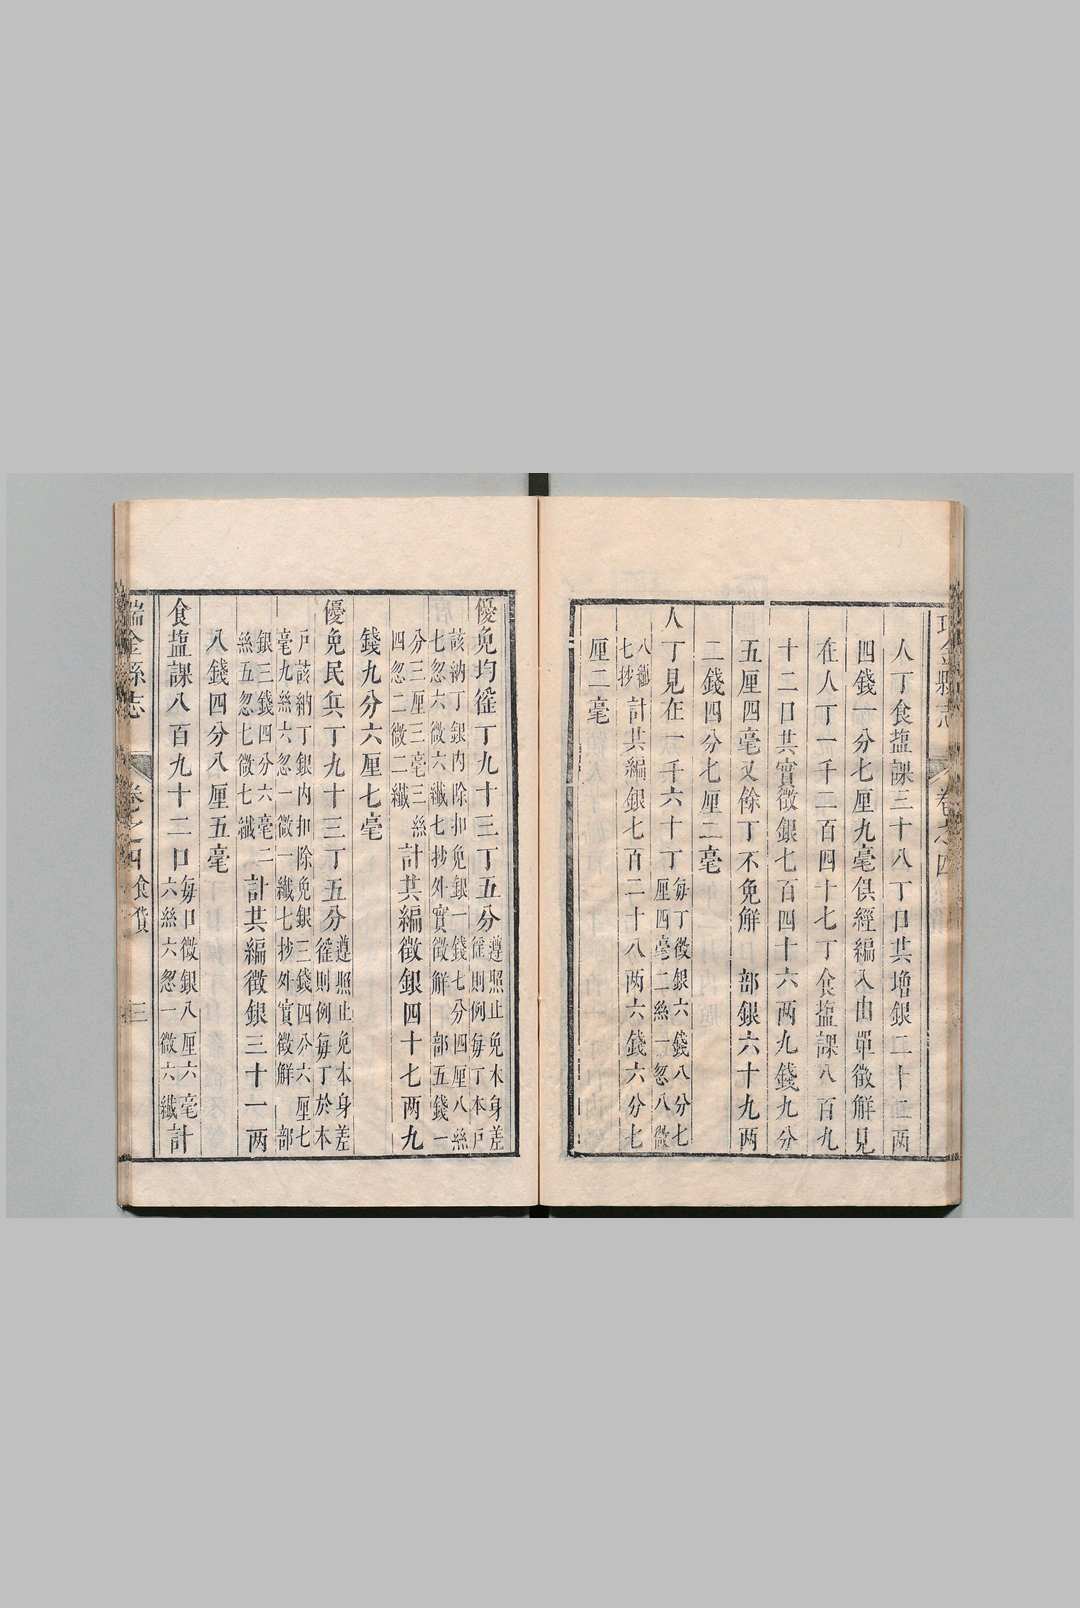 人丁食塩課三十八丁口共增銀二十二两
四錢一分七厘九毫俱經編入由單徵解見
在人丁一千二百四十七丁食塩課八百九
十二口共實徵銀七百四十六两九錢九分
五厘四毫又除丁不免解　部銀六十九两
二錢四分七厘二毫
人丁見在一千六十丁每丁徵銀六錢八分七
厘四毫二絲一忽八微
八纖
七抄計共編銀七百二十八两六錢六分七
厘二毫
優免均徭丁九十三丁五分遵照止免本身差
徭則例每丁本戶
該納丁銀內除扣免銀一錢七分四厘八絲
七忽六微六纖七抄外實徵解　部五錢一
分三厘三毫三絲
四忽二微二纖計共編徵銀四十七两九
錢九分六厘七毫
優免民兵丁九十三丁五分遵照止免本身差
徭則例每丁於本
戶該納丁銀內扣除免銀三錢四分六厘七
毫九絲六忽一微一纖七抄外實徵解　部
銀三錢四分六毫二
絲五忽七微七纖計共編徵銀三十一两
八錢四分八厘五毫
食塩課八百九十二口每口徵銀八厘六毫
六絲六忽一微六纖計
瑞金縣志　卷之四食貨　三